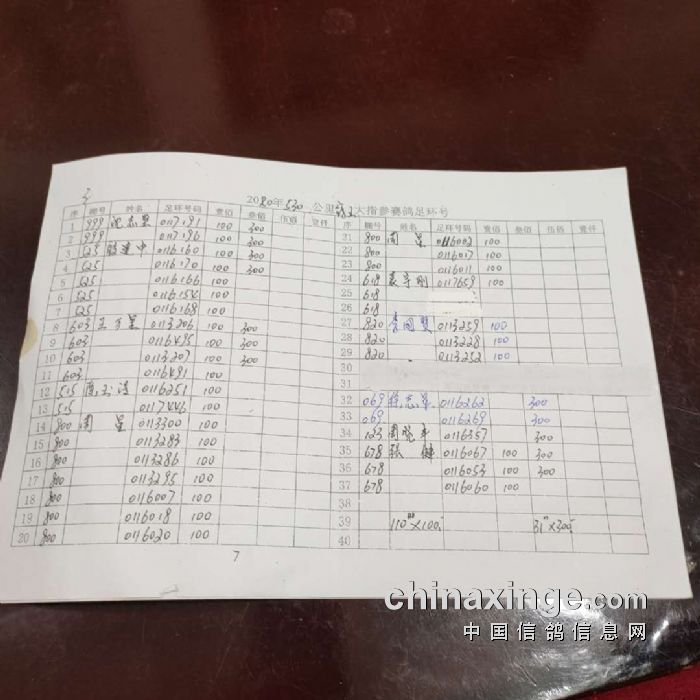 2020年530公里 大指参赛鸽足环号
序 棚号 姓名 足环号码 壹佰 叁佰 伍佰 壹仟
1 999 0117191 100 300
2 999 0117196 100 300
3 525 中 0116160 100 300
4 525 0116170 100 300
5 525 0116166 100
6 525 0116154 100
7 525 0116168 100
8 603 王万星 0113206 100 300
9 603 0116495 100 300
10 603 0113207 100 300
11 603 0116491 100
12 515 陈玉涛 0116251 100
13 515 0117446 100
14 800 周星 0113300 100
15 800 0113283 100
16 800 0113286 100
17 800 0113295 100
18 800 0116007 100
19 800 0116018 100
20 800 0116020 100
7
序 棚号 姓名 足环号码 壹佰 叁佰 伍佰 壹仟
21 800 周星 0116002 100
22 800 0116017 100
23 800 0116011 100
24 618 袁宇刚 0117659 100
25 618
26 618
27 820 0113259 100
28 820 0113228 100
29 820 0113252 100
30
31
32 069 0116262 300
33 069 0116269 300
34 123 周 0116357 300
35 678 张健 0116067 100 300
36 678 0116053 100 300
37 678 0116060 100
38
39 110×100 31×300
40
chinaxinge.com
中国信鸽信息网